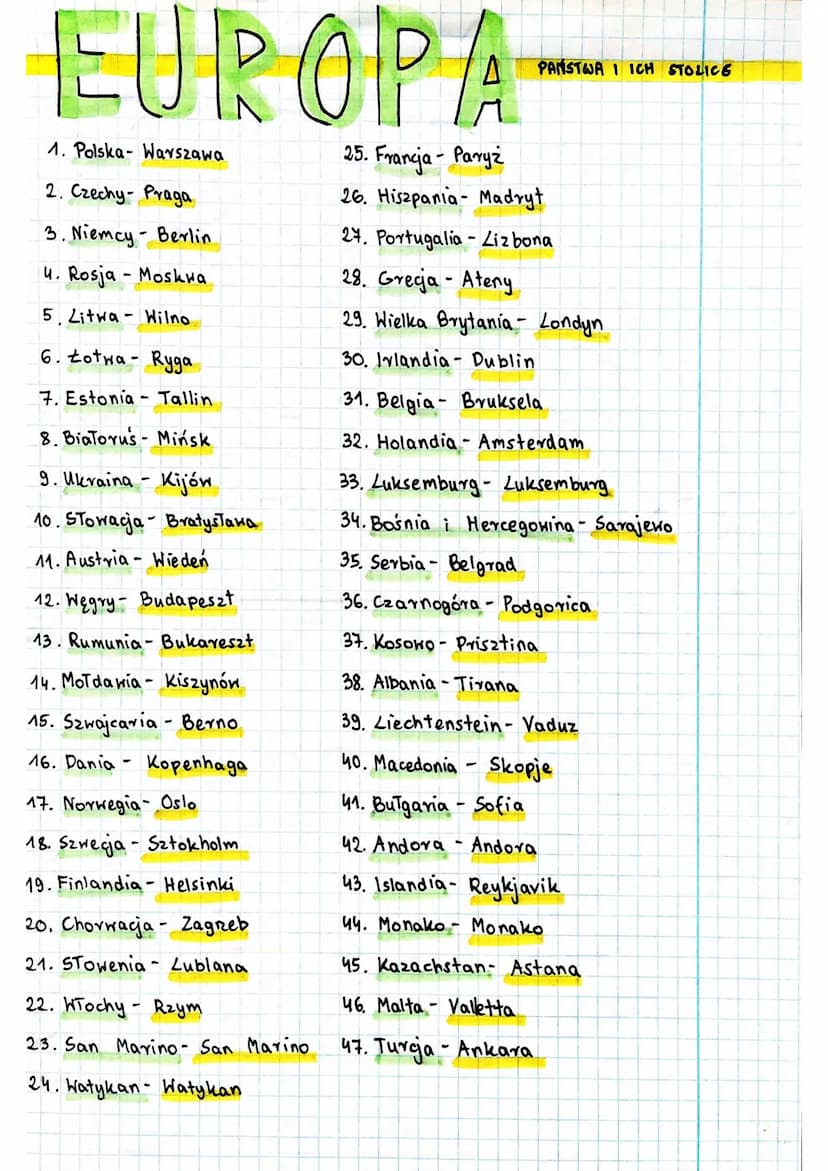 EUROPA
PAŃSTWA I ICH STOLICE
1. Polska - Warszawa
2. Czechy - Praga
3. Niemcy - Berlin
4. Rosja - Moskwa
5. Litwa - Wilno
6. Łotwa - Ryga
7. Estonia - Tallin
8. Białoruś - Mińsk
9. Ukraina - Kijów
10. Słowacja - Bratysława
11. Austria - Wiedeń
12. Węgry - Budapeszt
13. Rumunia - Bukareszt
14. Mołdawia - Kiszynów
15. Szwajcaria - Berno
16. Dania - Kopenhaga
17. Norwegia - Oslo
18. Szwecja - Sztokholm
19. Finlandia - Helsinki
20. Chorwacja - Zagreb
21. Słowenia - Lublana
22. Włochy - Rzym
23. San Marino - San Marino
24. Watykan - Watykan
25. Francja - Paryż
26. Hiszpania - Madryt
27. Portugalia - Lizbona
28. Grecja - Ateny
29. Wielka Brytania - Londyn
30. Irlandia - Dublin
31. Belgia - Bruksela
32. Holandia - Amsterdam
33. Luksemburg - Luksemburg
34. Bośnia i Hercegowina - Sarajewo
35. Serbia - Belgrad
36. Czarnogóra - Podgorica
37. Kosowo - Prisztina
38. Albania - Tirana
39. Liechtenstein - Vaduz
40. Macedonia - Skopje
41. Bułgaria - Sofia
42. Andora - Andora
43. Islandia - Reykjavik
44. Monako - Monako
45. Kazachstan - Astana
46. Malta - Valletta
47. Turcja - Ankara